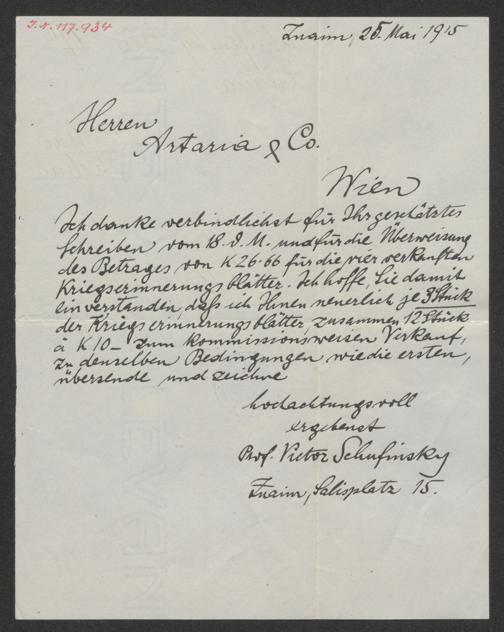 J.N. 117.934
Znaim, 25. Mai 1915
Herren
Artaria & Co.
Wien
Ich danke verbindlichst für Ihr geschätztes
Schreiben vom 18. d. M. und für die Überweisung
des Betrages von K 26·66 für die vier verkauften
Kriegserinnerungsblätter. Ich hoffe, Sie damit
einverstanden, daß ich Ihnen neuerlich je 3 Stück
der Kriegserinnerungsblätter, zusammen 12 Stück
à K 10– zum kommissionsweisen Verkauf,
zu denselben Bedingungen wie die ersten,
übersende und zeichne
hochachtungsvoll
ergebenst
Prof. Victor Schufinsky
Znaim, Salisplatz 15.